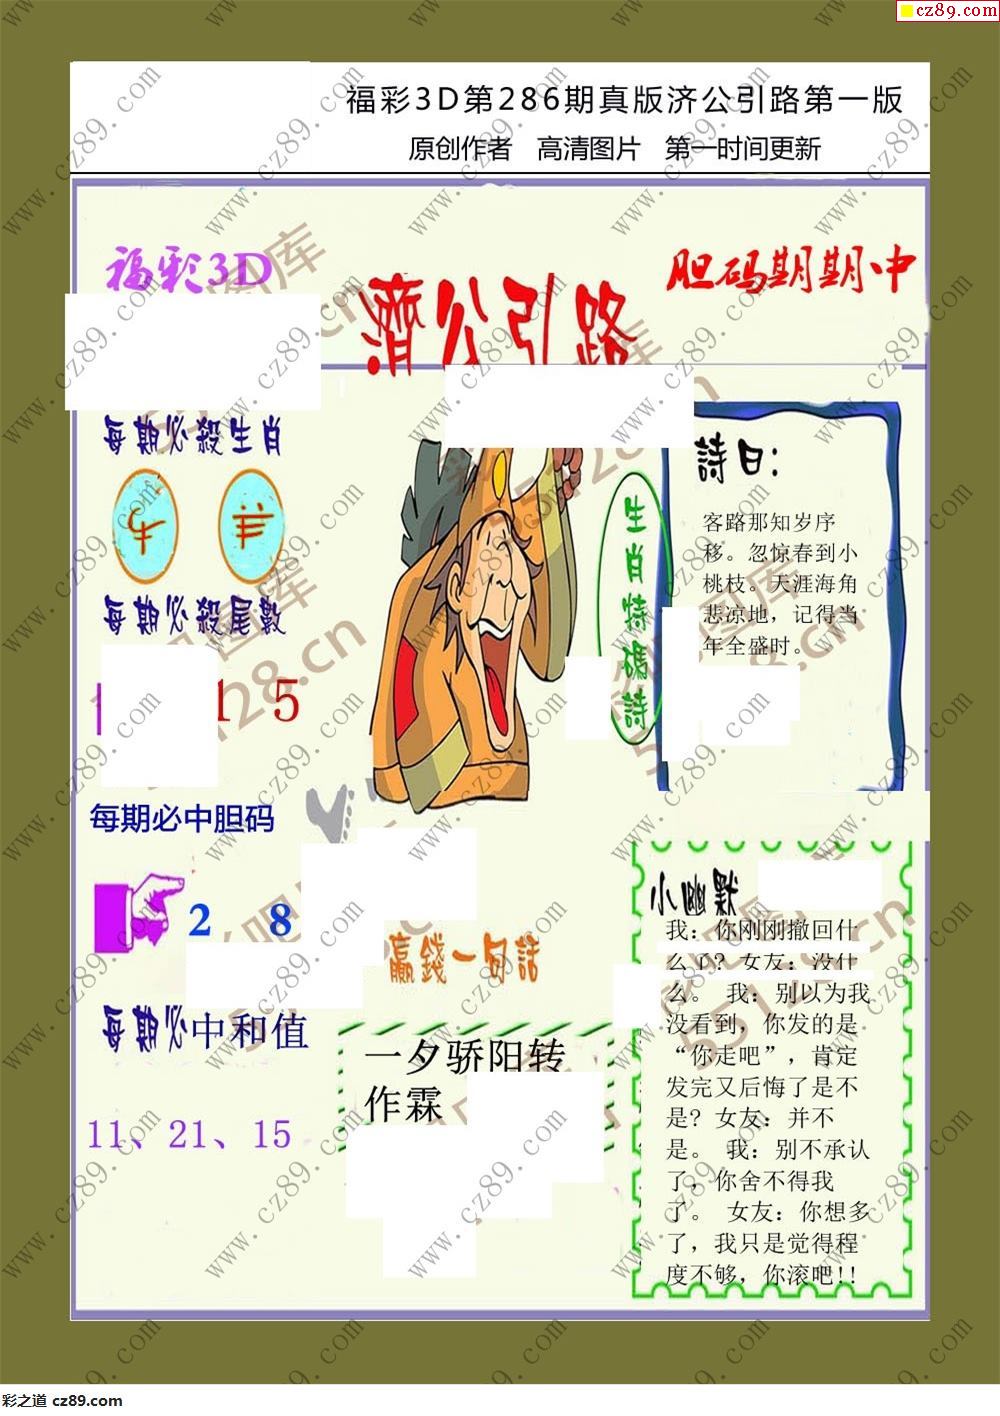 cz89.com
福彩3D第286期真版济公引路第一版
原创作者 高清图片 第一时间更新
福彩3D
濟公引路
胆码期期中
每期必殺生肖
牛
每期必殺尾數
1 5
每期必中胆码
2 8
每期必中和值
11、21、15
生肖特碼詩
詩曰:
客路那知岁序
移。忽惊春到小
桃枝。天涯海角
悲凉地，记得当
年全盛时。
赢錢一句話
一夕骄阳转
作霖
小幽默
我：你刚刚撤回什
么了? 女友：没什
么。 我：别以为我
没看到，你发的是
“你走吧”，肯定
发完又后悔了是不
是? 女友：并不
是。 我：别不承认
了，你舍不得我
了。 女友：你想多
了，我只是觉得程
度不够，你滚吧!!
www.cz89.com
55128.cn
彩之道 cz89.com